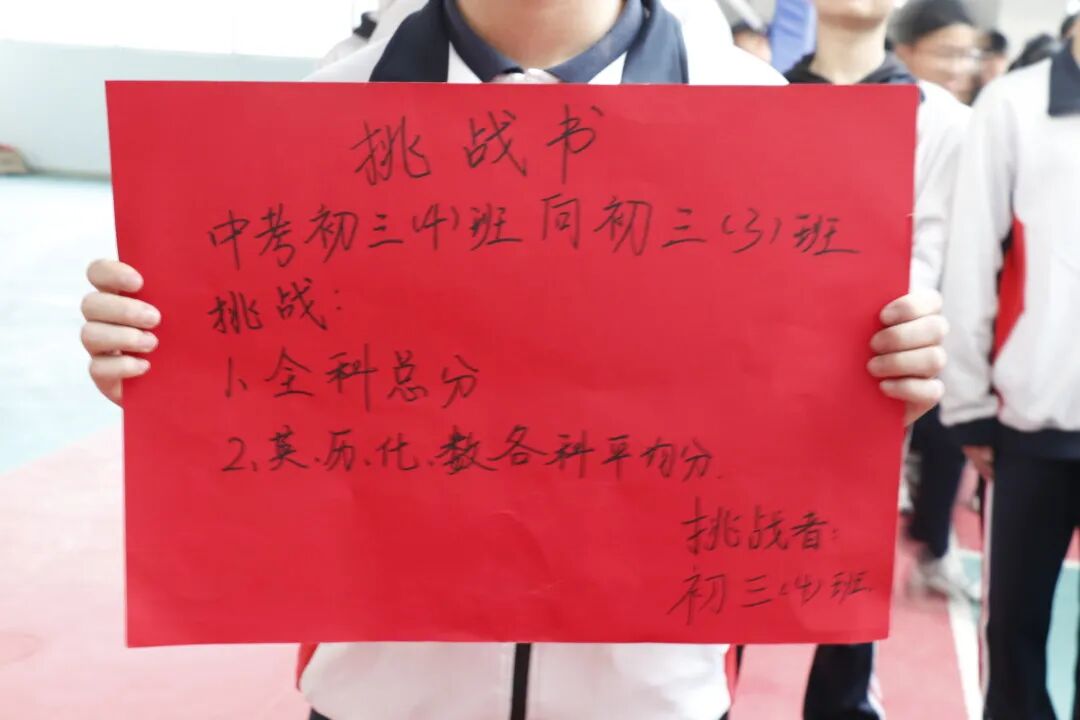 挑战书
中考初三(4)班向初三(3)班
挑战:
1、全科总分
2、英、历、化、数各科平均分.
挑战者:
初三(4)班